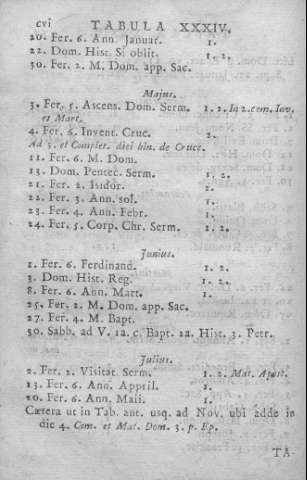 cvi TABULA XXXIV.
20. Fer. 6. Ann. Januar. 1.
22. Dom. Hist. Si oblit. 1. 2.
30. Fer. 2. M. Dom. app. Sac.
Majus.
3. Fer. 5. Ascens. Dom. Serm. 1. 2. In 2. com. Inv.
et Mart.
4. Fer. 6. Invent. Cruc. 2.
Ad 5. et Complet. diei hin. de Cruce.
11. Fer. 6. M. Dom.
13. Dom. Pentec. Serm. 1. 2.
21. Fer. 2. Isidor. 2.
22. Fer. 3. Ann. sol. 1.
23. Fer. 4. Ann. Febr. 1.
24. Fer. 5. Corp. Chr. Serm. 1. 2.
Junius.
1. Fer. 6. Ferdinand. 1. 2.
3. Dom. Hist. Reg. 1. 2.
8. Fer. 6. Ann. Mart. 1.
25. Fer. 2. M. Dom. app. Sac.
27. Fer. 4. M. Bapt.
30. Sabb. ad V. 1a. c. Bapt. 2a. Hist. 3. Petr.
Julius.
2. Fer. 2. Visitat. Serm. 1. 2. Mat. Apost.
13. Fer. 6. Ann. Appril. 1.
20. Fer. 6. Ann. Maii. 1.
Cætera ut in Tab. ant. usq. ad Nov. ubi adde in
die 4. Com. et Mat. Dom. 3. p. Ep.
TA-